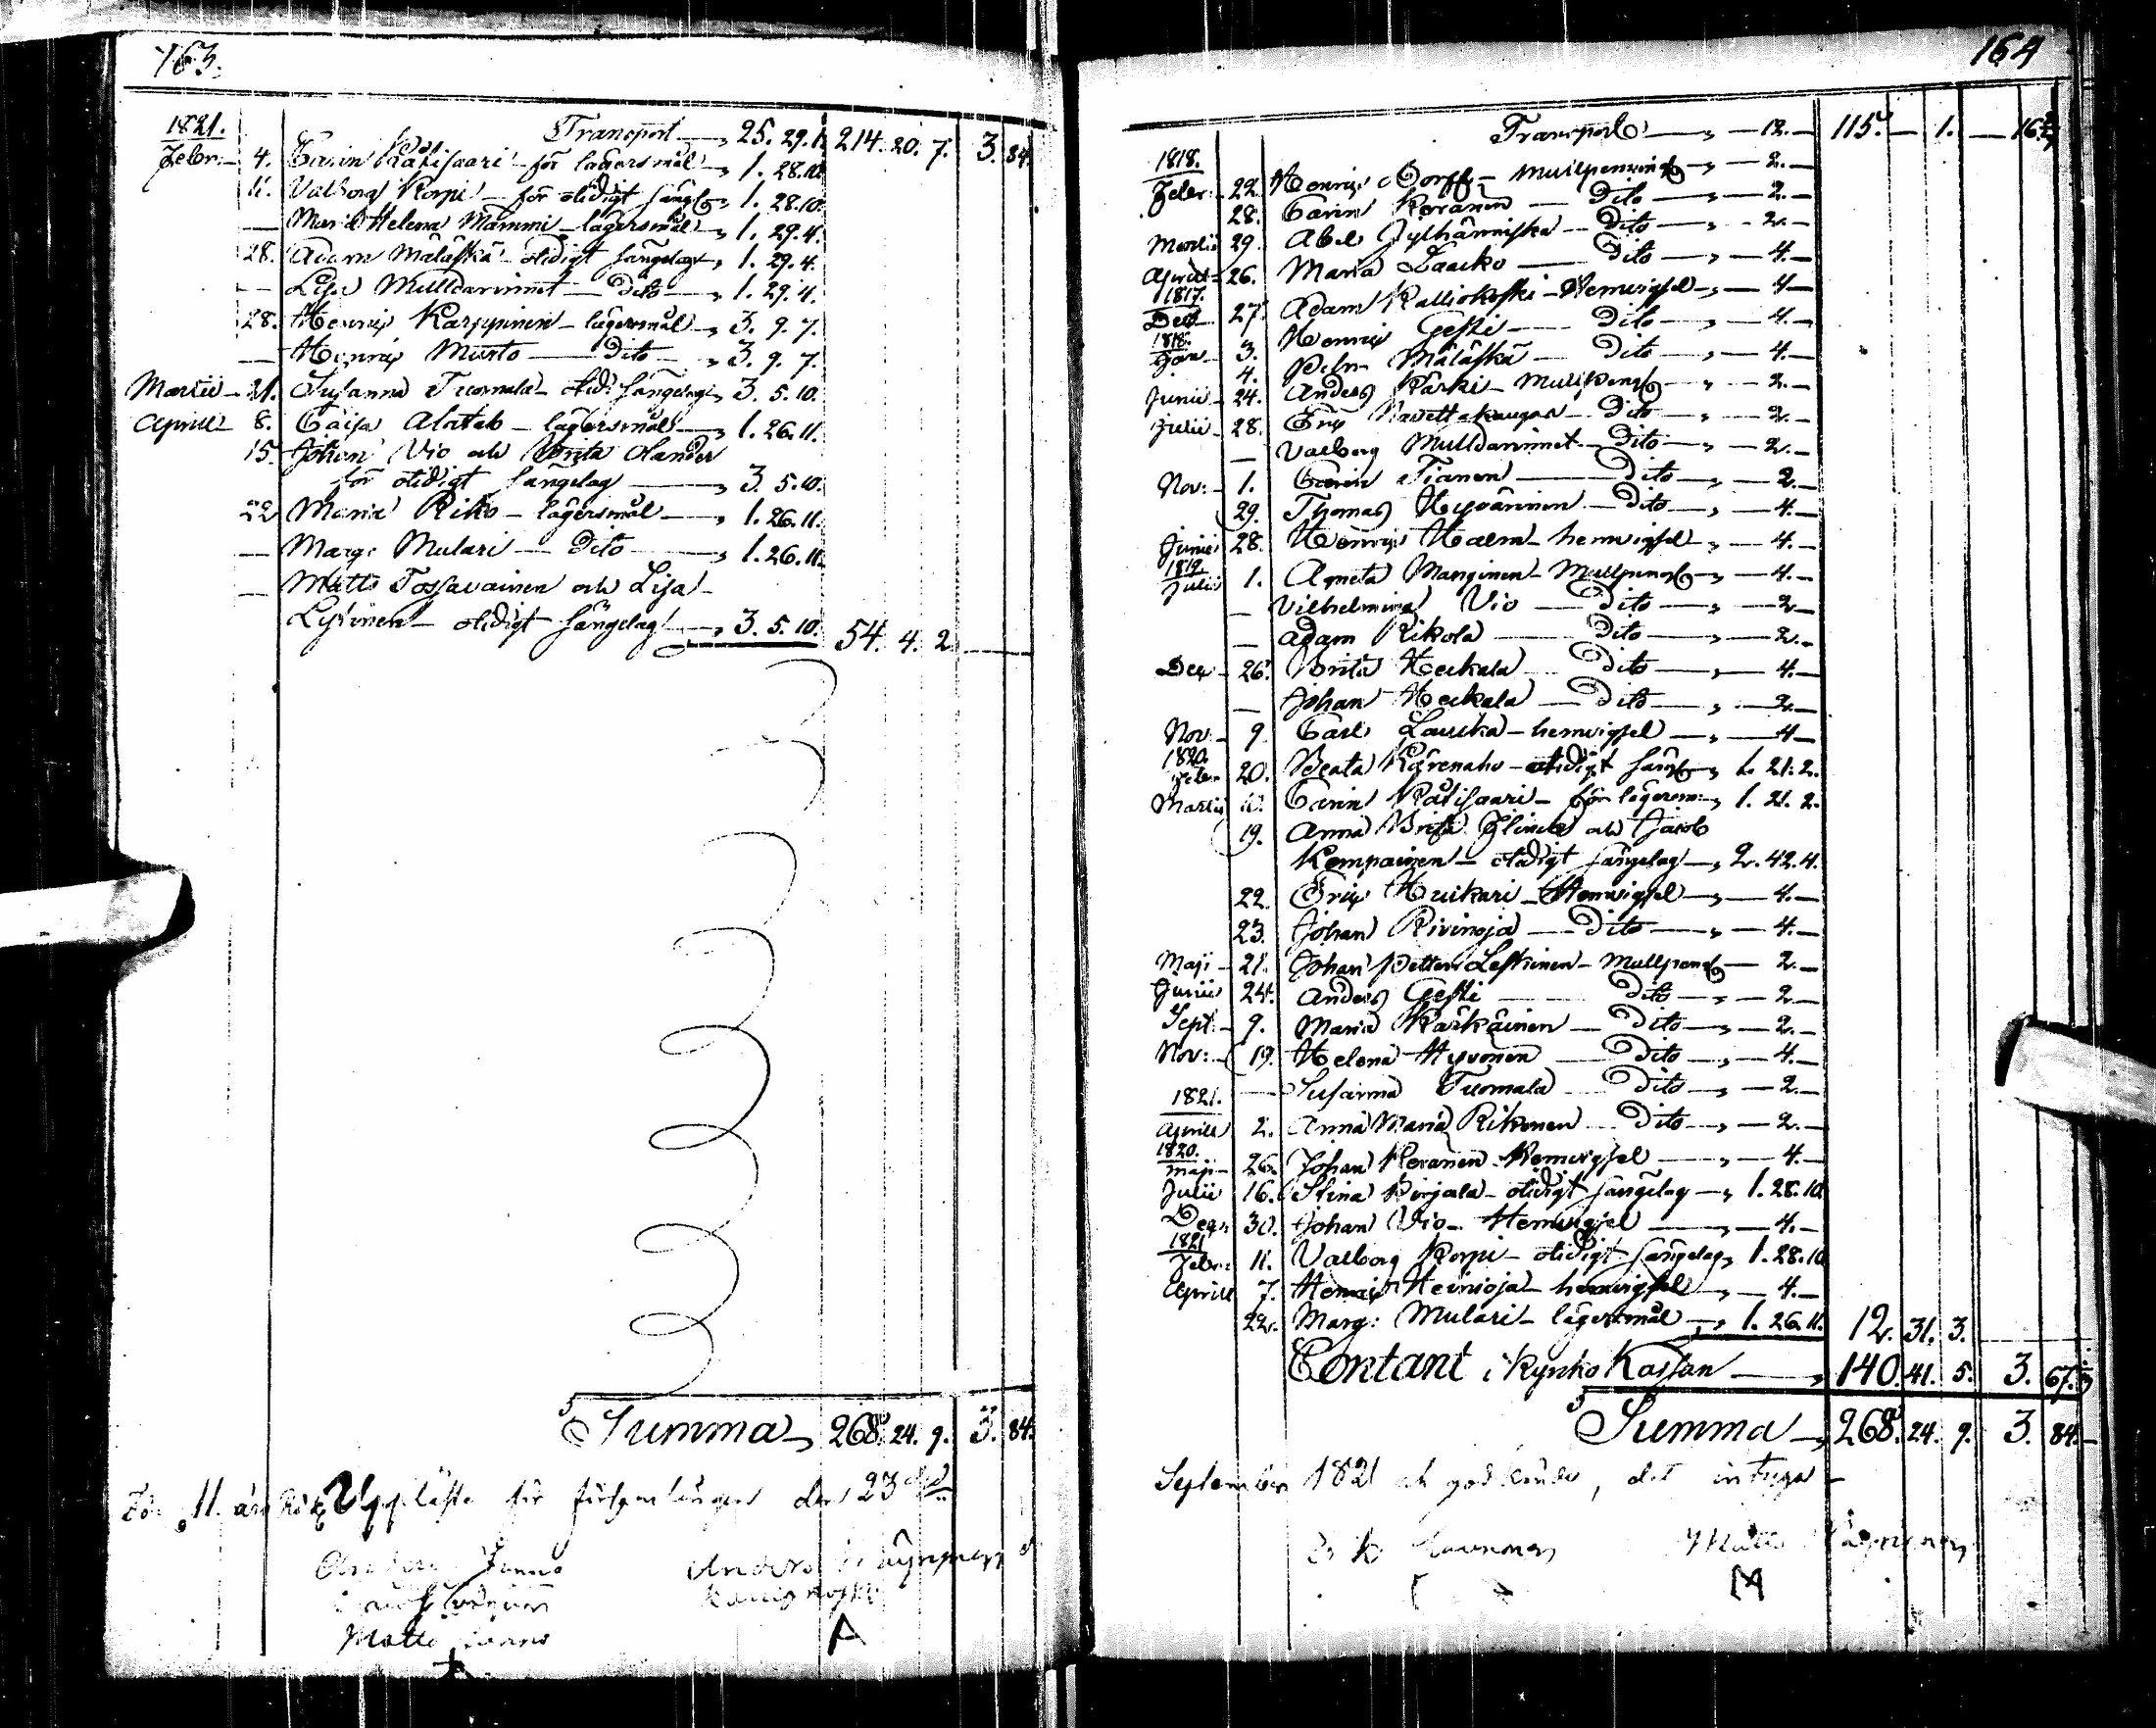 163.
1821. Transport — 25. 29. 1. 214. 20. 7. 3. 84.
Febr: — 4. Carin Kätisaari — för lägersmål — 1. 28. 10.
11. Valborg Korpi — för otidigt sängl: 1. 28. 10.
— Maria Helena Mämmi — lägersmål — 1. 29. 4.
28. Adam Mäläskä — otidigt sängelag 1. 29. 4.
— Lisa Mulldarinnet — Dito — 1. 29. 4.
28. Henric Karppinen — lägersmål — 3. 9. 7.
— Henric Mursto — Dito — 3. 9. 7.
Martii — 21. Susanna Tuomala — otid: sängelag 3. 5. 10.
Aprill — 8. Caisa Alatalo — lägersmål — 1. 26. 11.
15. Johan Vio och Brita Olander
för otidigt sängelag — 3. 5. 10.
22 Maria Riko — lägersmål — 1. 26. 11.
— Marg: Mulari — Dito — 1. 26. 11.
— Matts Tossavainen och Lisa
Lyvinen — otidigt sängelag — 3. 5. 10. 54. 4. 2.
Summa 268. 24. 9. 3. 84.
Uppläste för församlingen den 23
Anders
Matts
A
164
Transport — 12. — 115. — 1. — 16.
1818.
Febr: — 22. Henric — mullpenning — 2. —
28. Carin Keränen — Dito — 2. —
Martii 29. Abel Jylhänniska — Dito — 2. —
Aprill — 26. Maria Laacko — Dito — 4. —
1817.
Dec 27. Adam Kalliokoski — Hemvigsel — 4 —
1818. Henric Geski — Dito — 4. —
Janu — 3. Petr Mäläskä — Dito — 4. —
4.
Junii — 24. Anders Kärki — Mullpeng — 2. —
Julii — 28. Eric Navettakangas — Dito — 2. —
— Valborg Mulldarinnet — Dito — 2. —
Nov: — 1. Carin Tianen — Dito — 2. —
29. Thomas Hyvärinen — Dito — 4. —
Junii 28. Henric Halm — hemvigsel — 4. —
1819.
Julii 1. Agneta Manginen — Mullpenng — 4. —
— Vilhelmina Vio — Dito — 2 —
— Adam Rikola — Dito — 2. —
Dec — 26. Brita Heikala — Dito — 4. —
— Johan Heikala — Dito — 2. —
Nov: — 9 Carl Laucka — hemvigsel — 4 —
1820.
Febr 20. Beata Kärenaho — otidigt sängl 1. 21. 2.
Martii 10. Carin Kätisaari — för lägersm: 1. 21. 2.
19. Anna Brita Flinck och Jacob
Kempainen — otidigt sängelag — 2. 42. 4.
22. Eric Huikari — Hemvigsel — 4. —
23. Johan Rivinoja — Dito — 4. —
Maji — 21. Johan Petter Leskinen — Mullpeng — 2. —
Junii 24. Anders Geski — Dito — 2 —
Sept: — 9. Maria Kärkäinen — Dito — 2. —
Nov: — 19. Helena Hyvönen — Dito — 4. —
— Susanna Tuomala — Dito — 2. —
1821.
Aprill 2. Anna Maria Rikonen — Dito — 2. —
1820.
Maji — 26. Johan Keränen Hemvigsel — 4. —
Julii 16. Stina Pirjala — otidigt sängelag — 1. 28. 10.
Decr 30. Johan Vio — Hemvigsel — 4. —
1821
Febr: 11. Valborg Korpi — otidigt sängelag 1. 28. 10
Aprill 7. Henric Heinioja — hemvigsel — 4. —
22. Marg: Mulari — lägersmål — 1. 26. 11. 12. 31. 3.
Contant i Kyrko Kassan — 140. 41. 5. 3. 67.
Summa — 268. 24. 9. 3. 84. —
September 1821 och godkändes, det intyga —
Matts